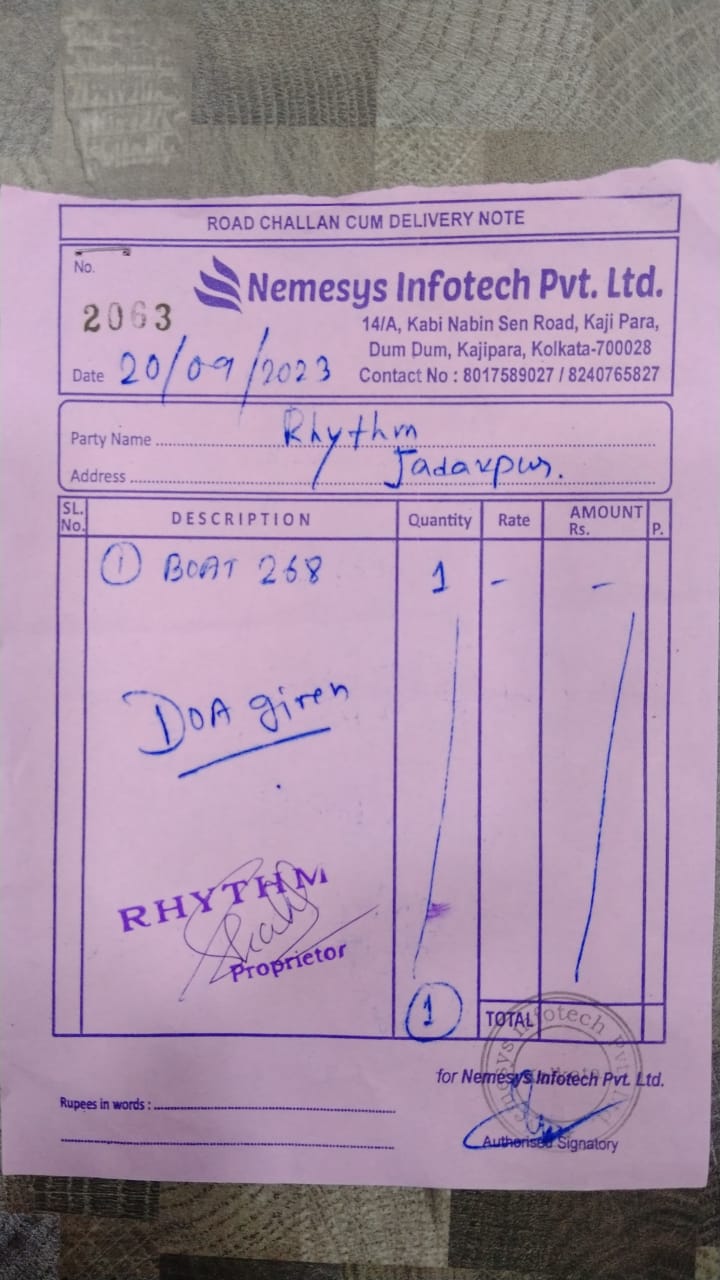 ROAD CHALLAN CUM DELIVERY NOTE
No.
2063
Nemesys Infotech Pvt. Ltd.
14/A, Kabi Nabin Sen Road, Kaji Para,
Dum Dum, Kajipara, Kolkata-700028
Date 20/09/2023
Contact No : 8017589027 / 8240765827
Party Name Rhythm
Address Jadavpur.
SL. No. DESCRIPTION Quantity Rate AMOUNT Rs. P.
① BOAT 268 1 - -
DOA given
RHYTHM
Proprietor
1 TOTAL
for Nemesys Infotech Pvt. Ltd.
Rupees in words :
Authorised Signatory